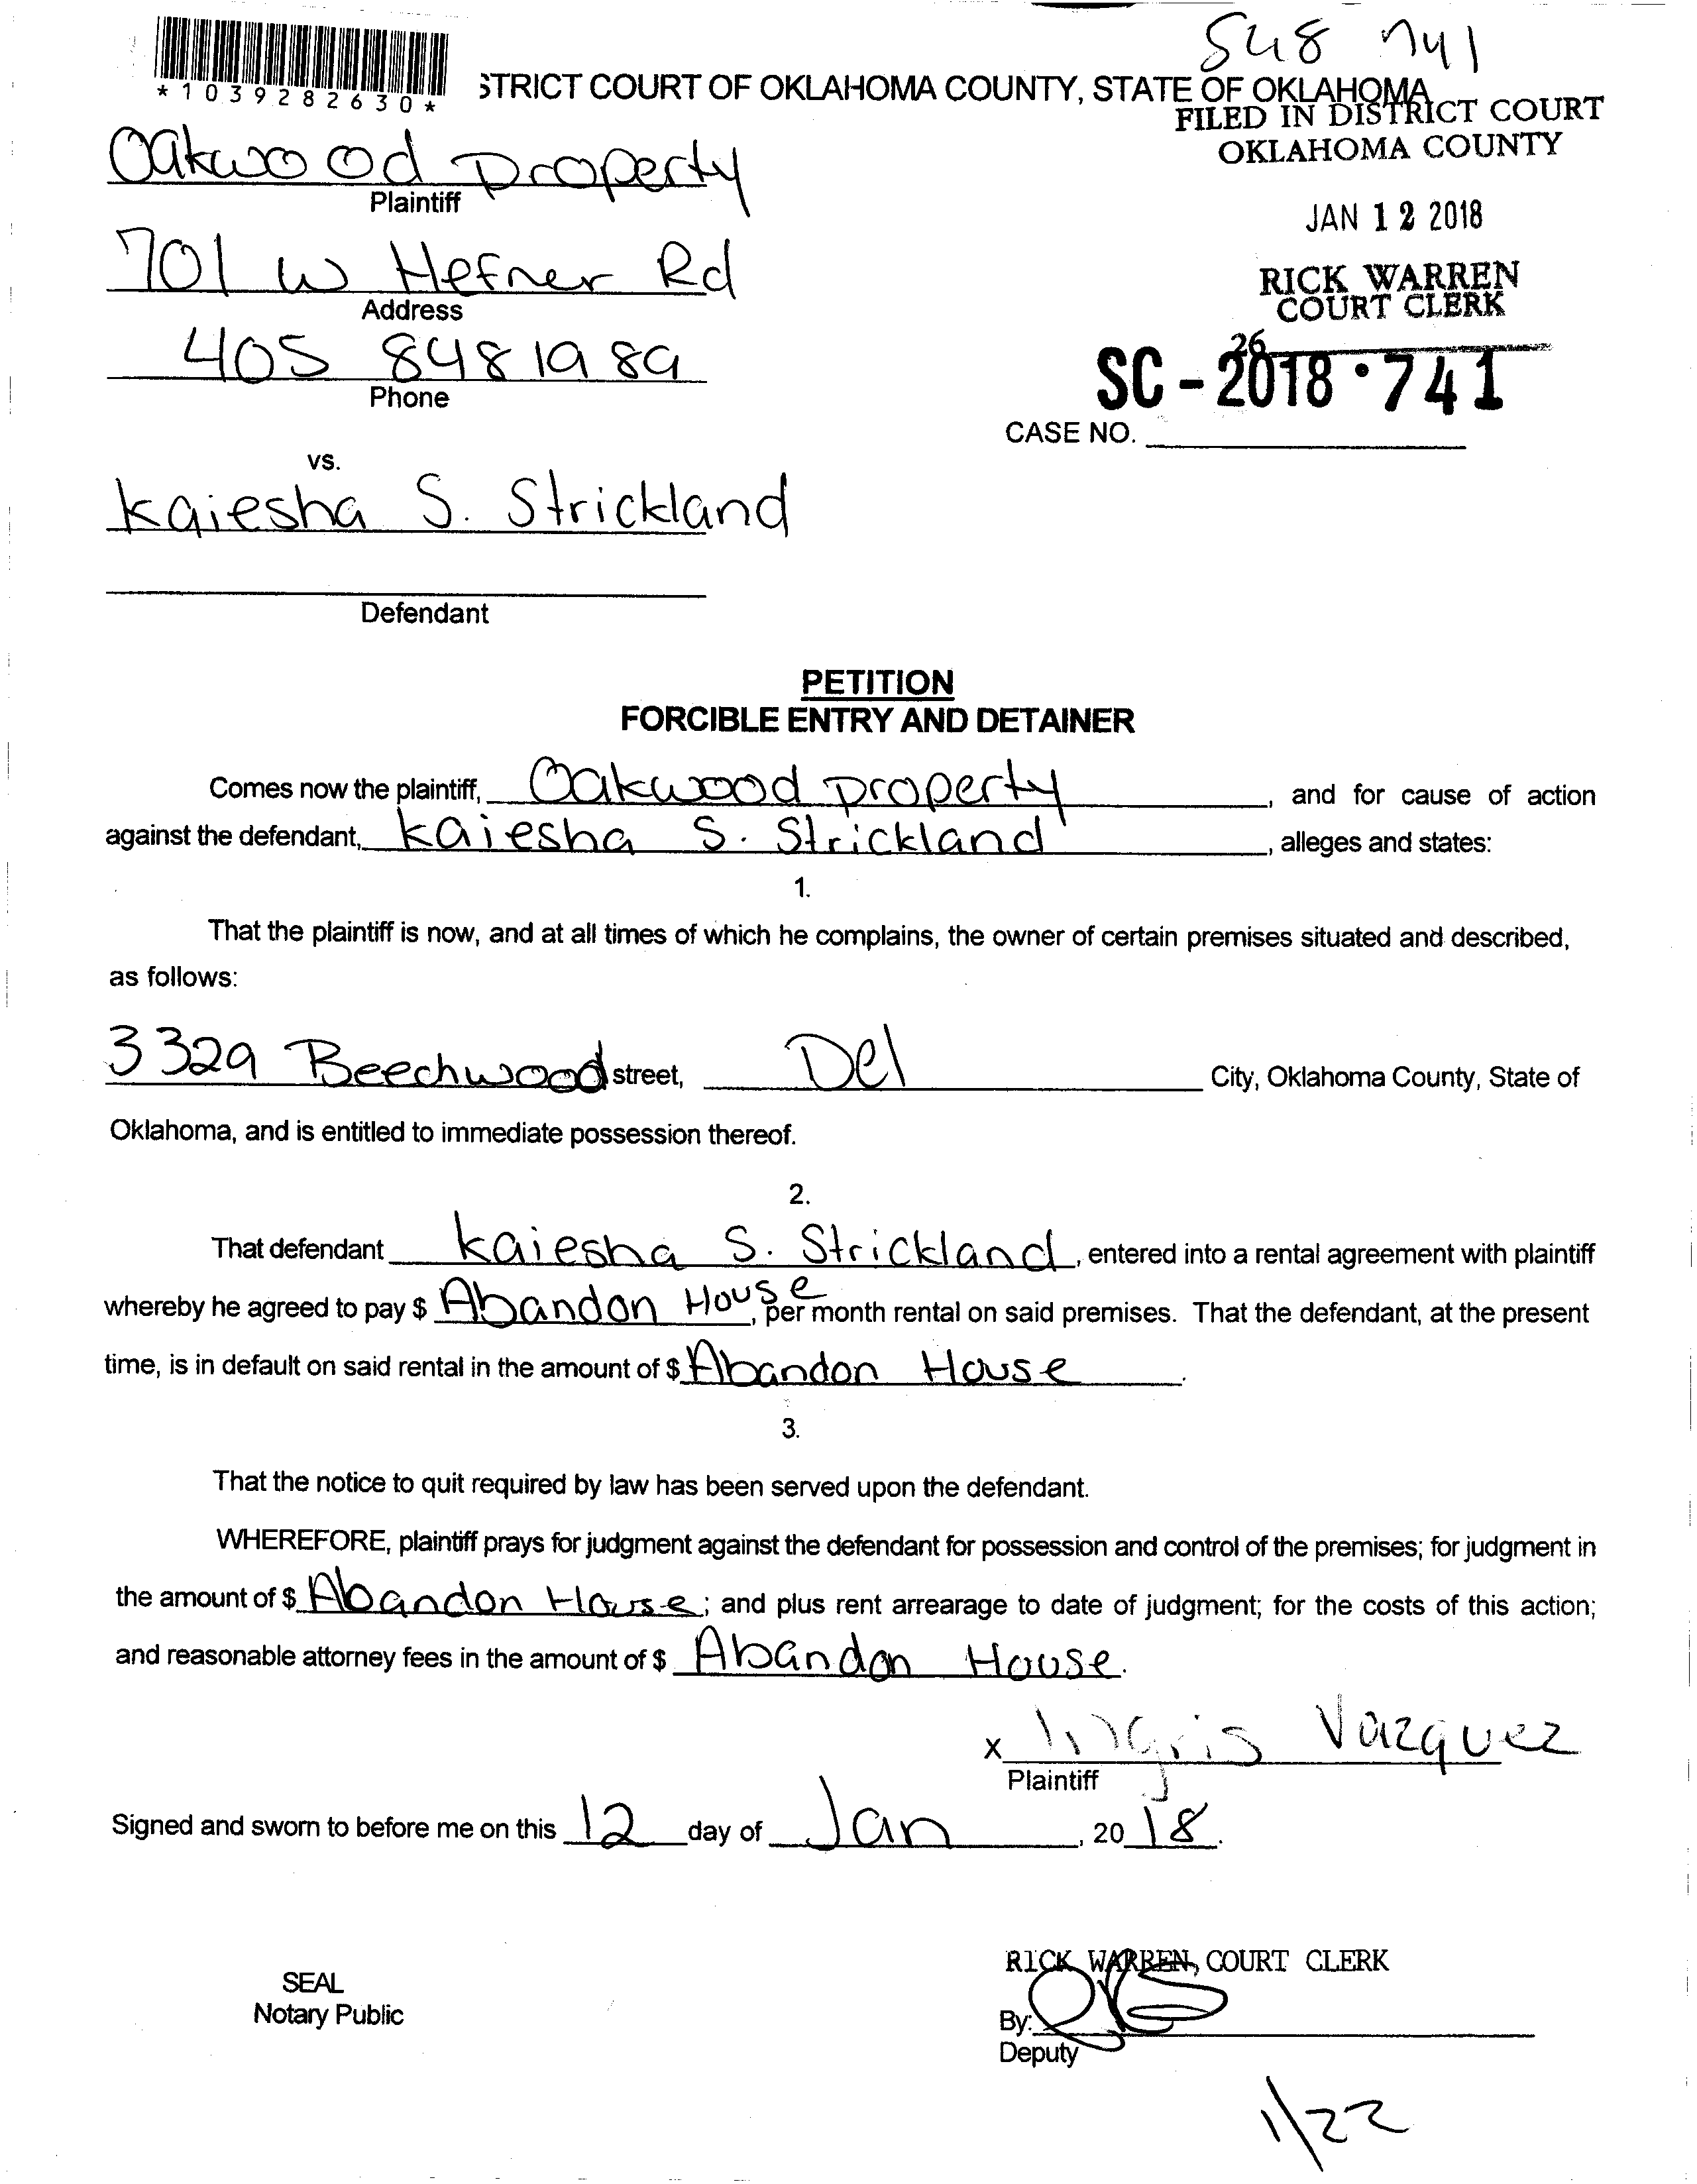 S48 741
*1039282630*
STRICT COURT OF OKLAHOMA COUNTY, STATE OF OKLAHOMA
FILED IN DISTRICT COURT
OKLAHOMA COUNTY
Oakwood property
Plaintiff
JAN 12 2018
701 W Hefner Rd
Address
RICK WARREN
COURT CLERK
405 848 1989
Phone
26
SC - 2018 • 741
CASE NO.
vs.
Kaiesha S. Strickland
Defendant
PETITION
FORCIBLE ENTRY AND DETAINER
Comes now the plaintiff, Oakwood property, and for cause of action
against the defendant, Kaiesha S. Strickland, alleges and states:
1.
That the plaintiff is now, and at all times of which he complains, the owner of certain premises situated and described,
as follows:
3329 Beechwood street, Del City, Oklahoma County, State of
Oklahoma, and is entitled to immediate possession thereof.
2.
That defendant Kaiesha S. Strickland, entered into a rental agreement with plaintiff
whereby he agreed to pay $ Abandon House, per month rental on said premises. That the defendant, at the present
time, is in default on said rental in the amount of $ Abandon House.
3.
That the notice to quit required by law has been served upon the defendant.
WHEREFORE, plaintiff prays for judgment against the defendant for possession and control of the premises; for judgment in
the amount of $ Abandon House; and plus rent arrearage to date of judgment; for the costs of this action;
and reasonable attorney fees in the amount of $ Abandon House.
X Ingris Vazquez
Plaintiff
Signed and sworn to before me on this 12 day of Jan, 2018.
RICK WARREN, COURT CLERK
SEAL
Notary Public
By:
Deputy
1/22